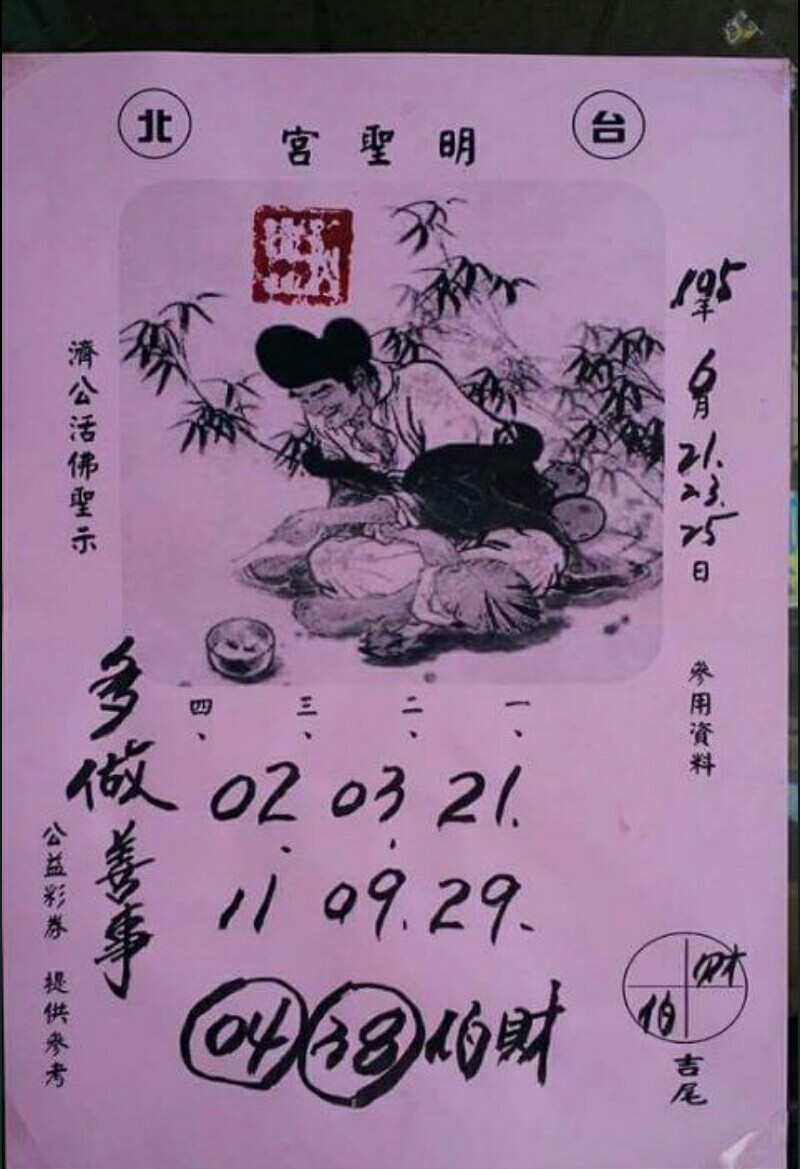 台北
明聖宮
105年6月21.23.25日 參用資料
濟公活佛聖示
一、
二、
三、
四、
02 03 21.
11 09. 29.
04 38 伯財
多做善事
公益彩券 提供參考
財
伯
吉尾